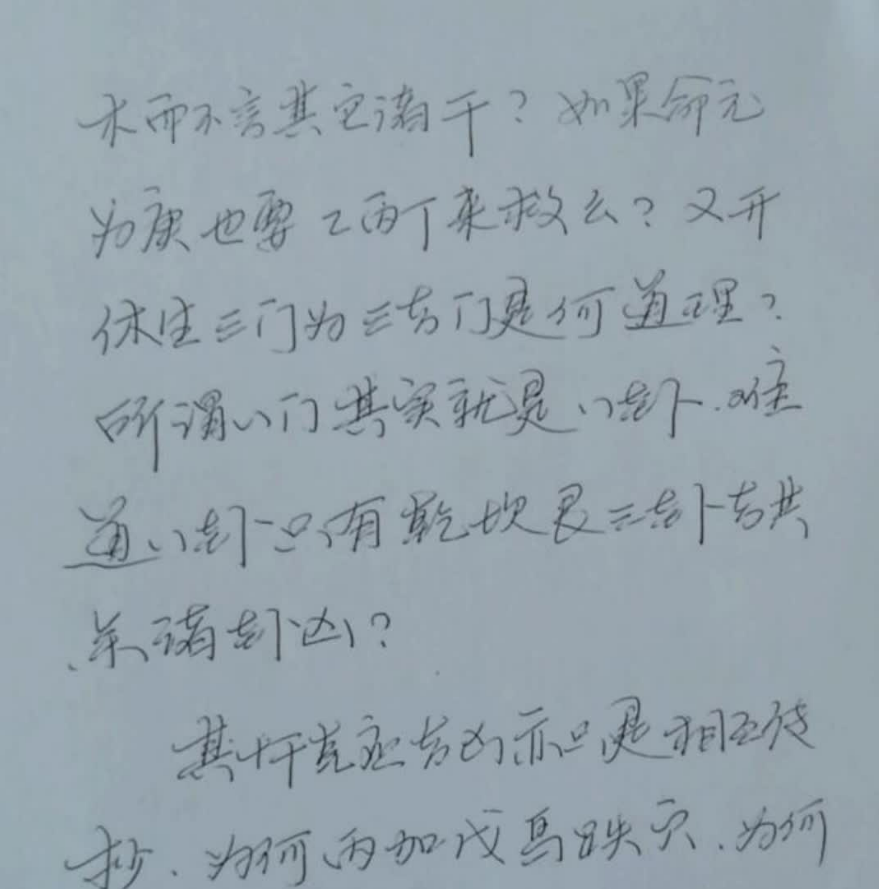 木而不言其它诸干？如果命元
为庚也要乙丙丁来救么？又开
休生三门为三吉门是何道理？
所谓八门其实就是八卦、难
道八卦只有乾坎艮三卦吉其
余诸卦凶？
其十干克应吉凶亦只是相互传
抄、为何丙加戊鸟跌穴、为何